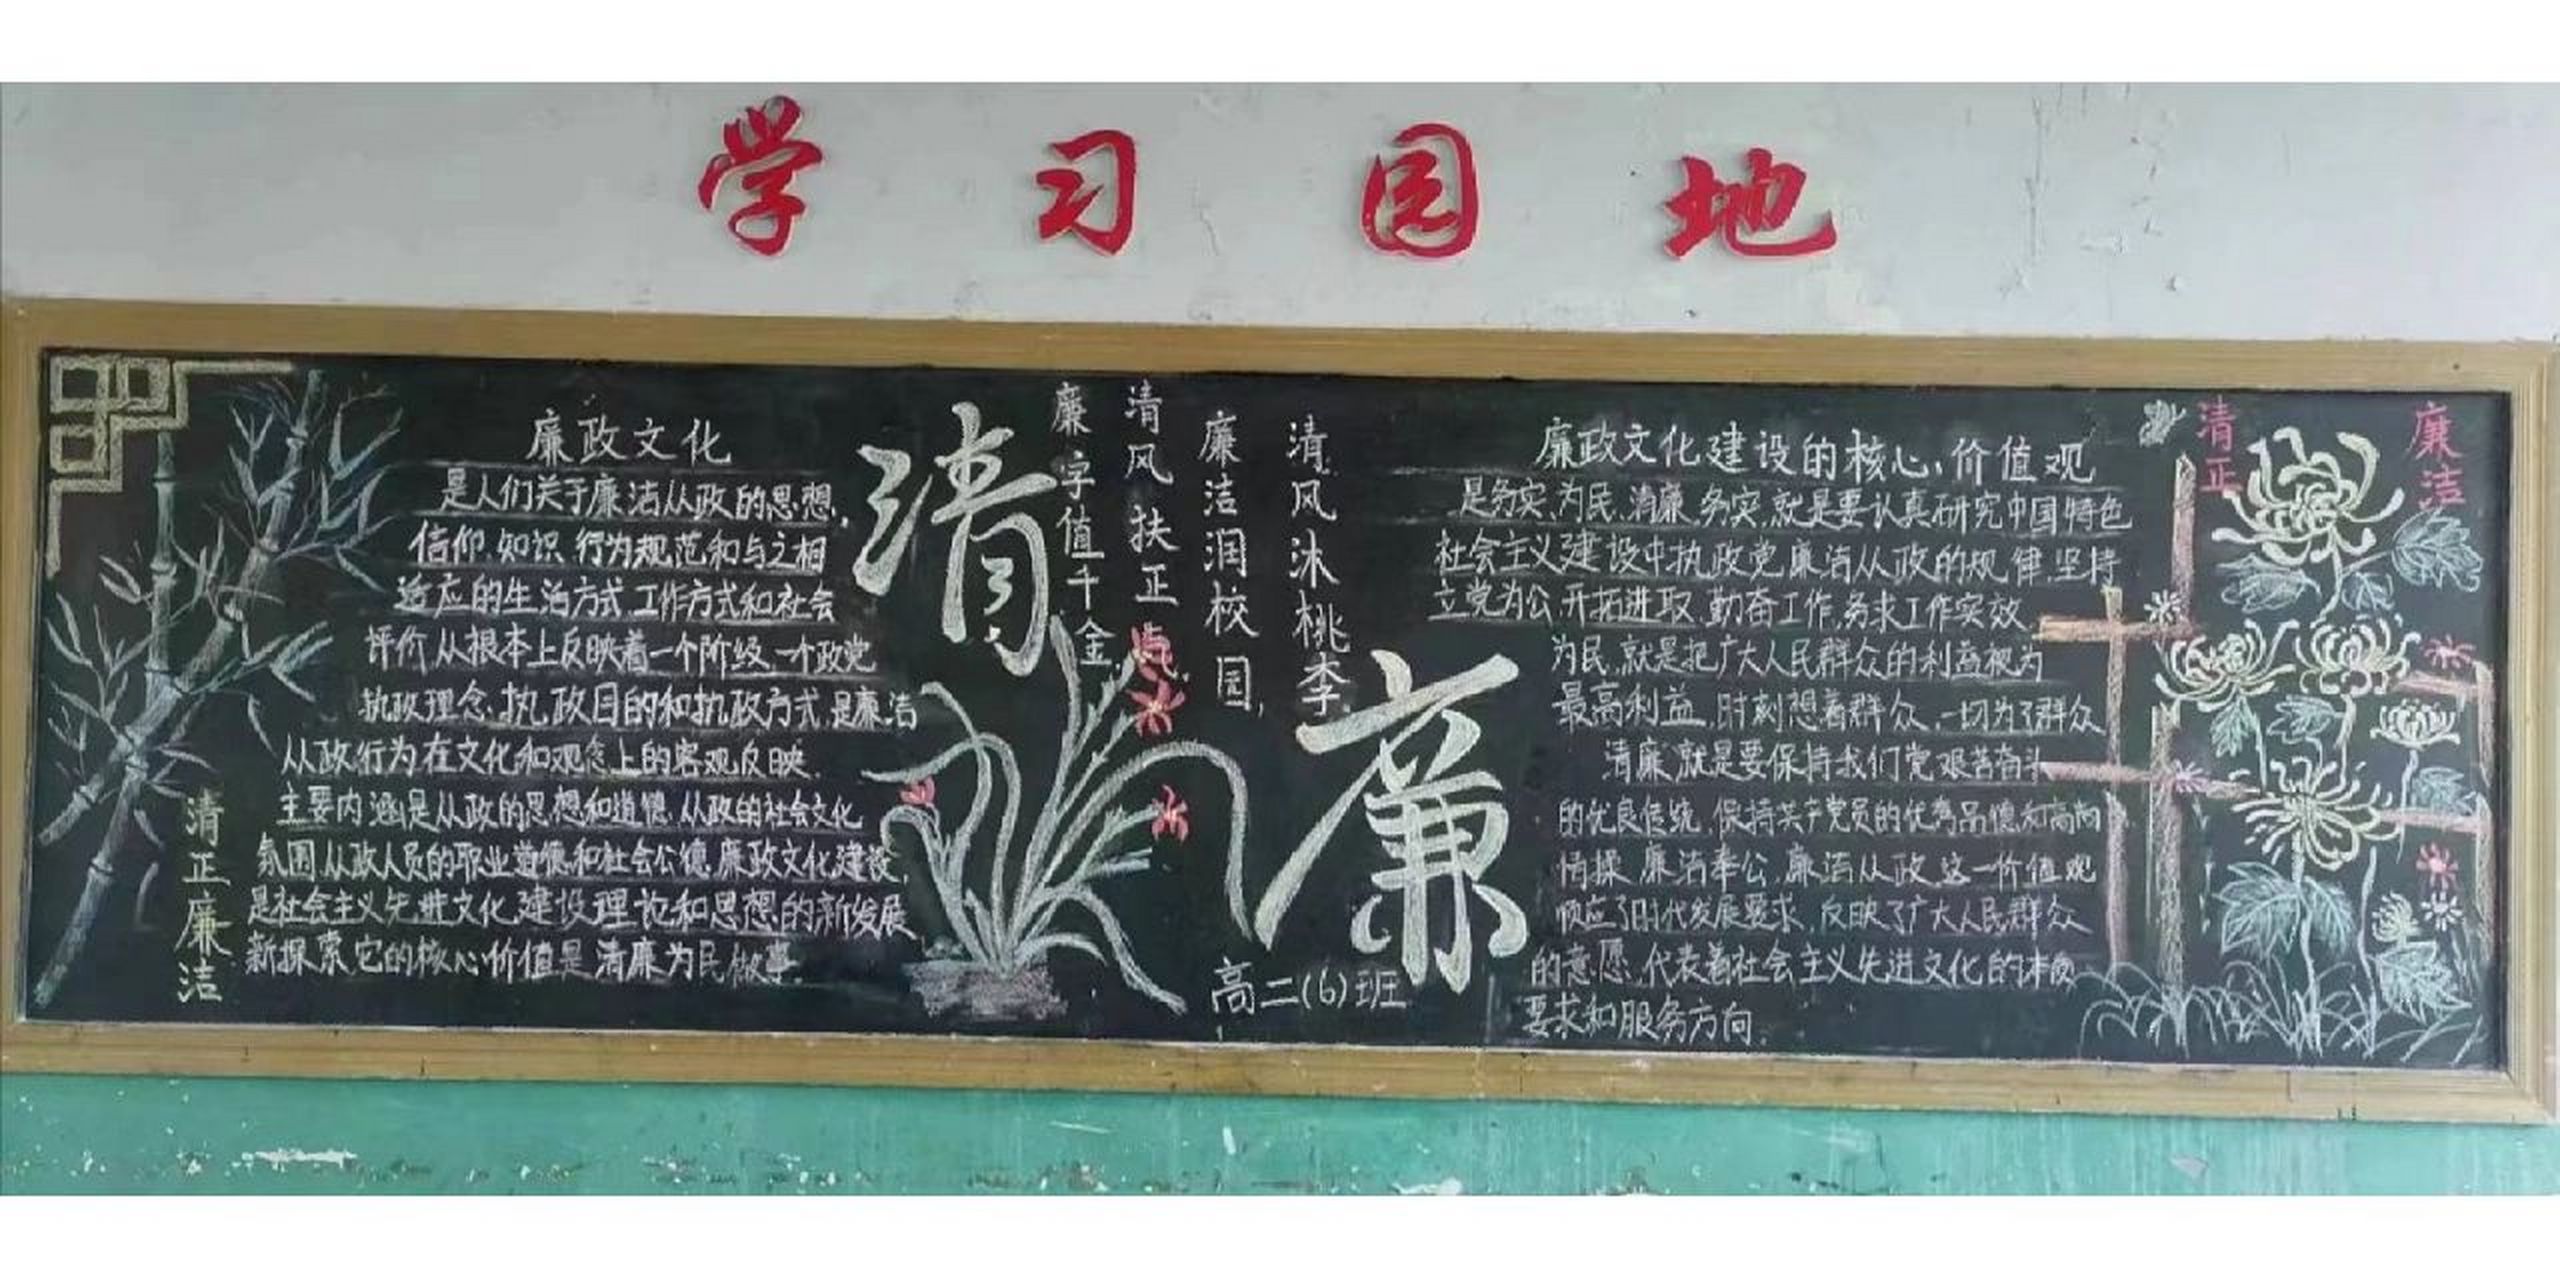 学习园地
廉政文化
是人们关于廉洁从政的思想,
信仰、知识、行为规范和与之相
适应的生活方式、工作方式和社会
评价,从根本上反映着一个阶级、一个政党
执政理念、执政目的和执政方式,是廉洁
从政行为在文化和观念上的客观反映.
主要内涵是从政的思想和道德、从政的社会文化
氛围、从政人员的职业道德和社会公德.廉政文化建设,
是社会主义先进文化建设理论和思想的新发展
新探索,它的核心价值是清廉为民做事.
清正廉洁
清廉
清风沐桃李.
廉洁润校园,
清风扶正气.
廉字值千金,
高二(6)班
廉政文化建设的核心价值观
是务实、为民、清廉.务实,就是要认真研究中国特色
社会主义建设中执政党廉洁从政的规律.坚持
立党为公,开拓进取,勤奋工作,务求工作实效.
为民,就是把广大人民群众的利益视为
最高利益,时刻想着群众,一切为了群众
清廉,就是要保持我们党艰苦奋斗
的优良传统,保持共产党员的优秀品德和高尚
情操,廉洁奉公,廉洁从政.这一价值观
顺应了时代发展要求,反映了广大人民群众
的意愿,代表着社会主义先进文化的本质
要求和服务方向.
清正
廉洁